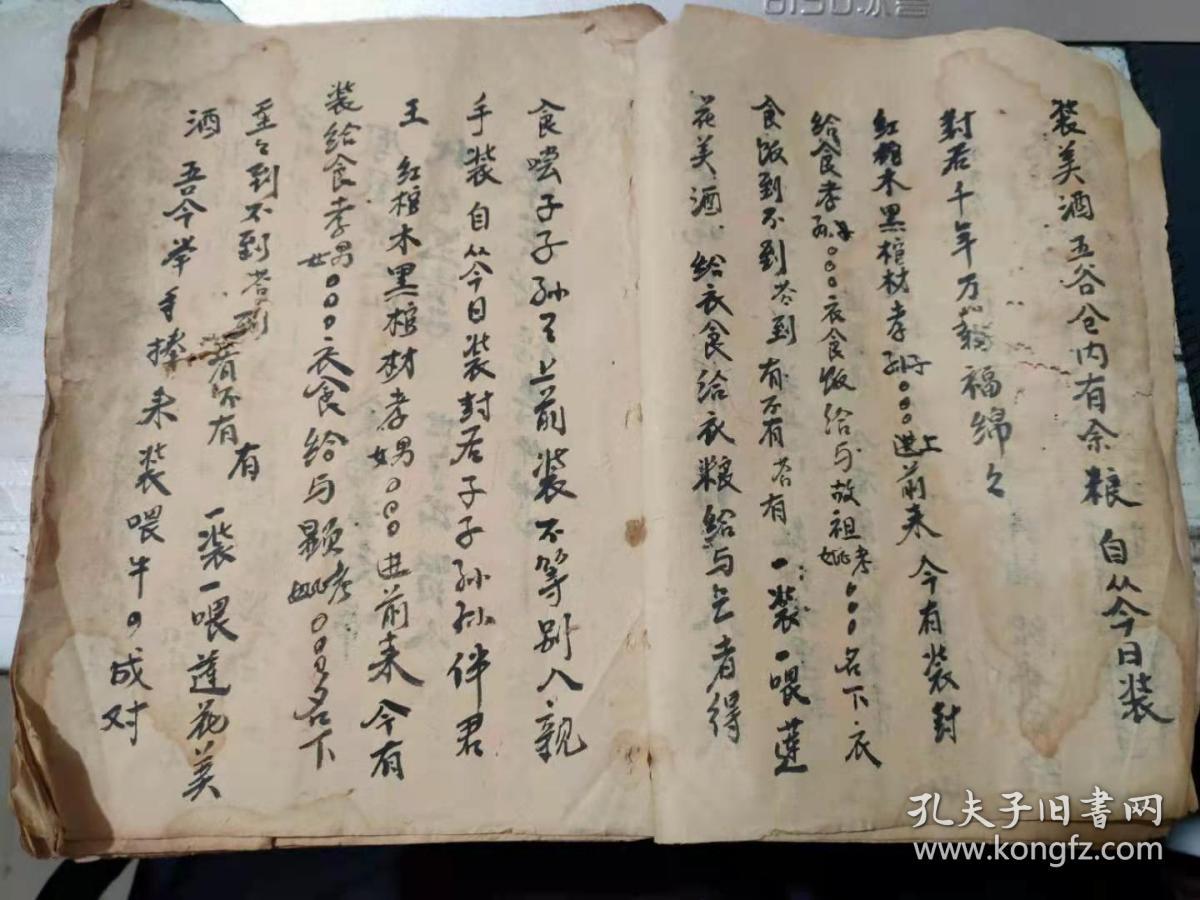 装美酒 五谷仓内有余粮 自从今日装
對君千年万 福绵々
紅棺木黑棺材孝孫子○○○進上前来 今有装封
给食孝孫○○○衣食飯给与故祖考妣○○○名下衣
食飯到不到答到 有不有答有 一装一喂莲
花美酒 给衣食给衣粮给与亡者得
食 子子孙孙上前装不等别人亲
手装 自从今日装封君子子孙孙伴君
王 红棺木黑棺材孝男女○○○进前来今有
装给食孝男女○○○衣食给与显考妣○○○名下
至々到不到答到 有不有 有 一装一喂莲花美
酒 吾今举手捧来装喂牛 成对
孔夫子旧书网
www.kongfz.com